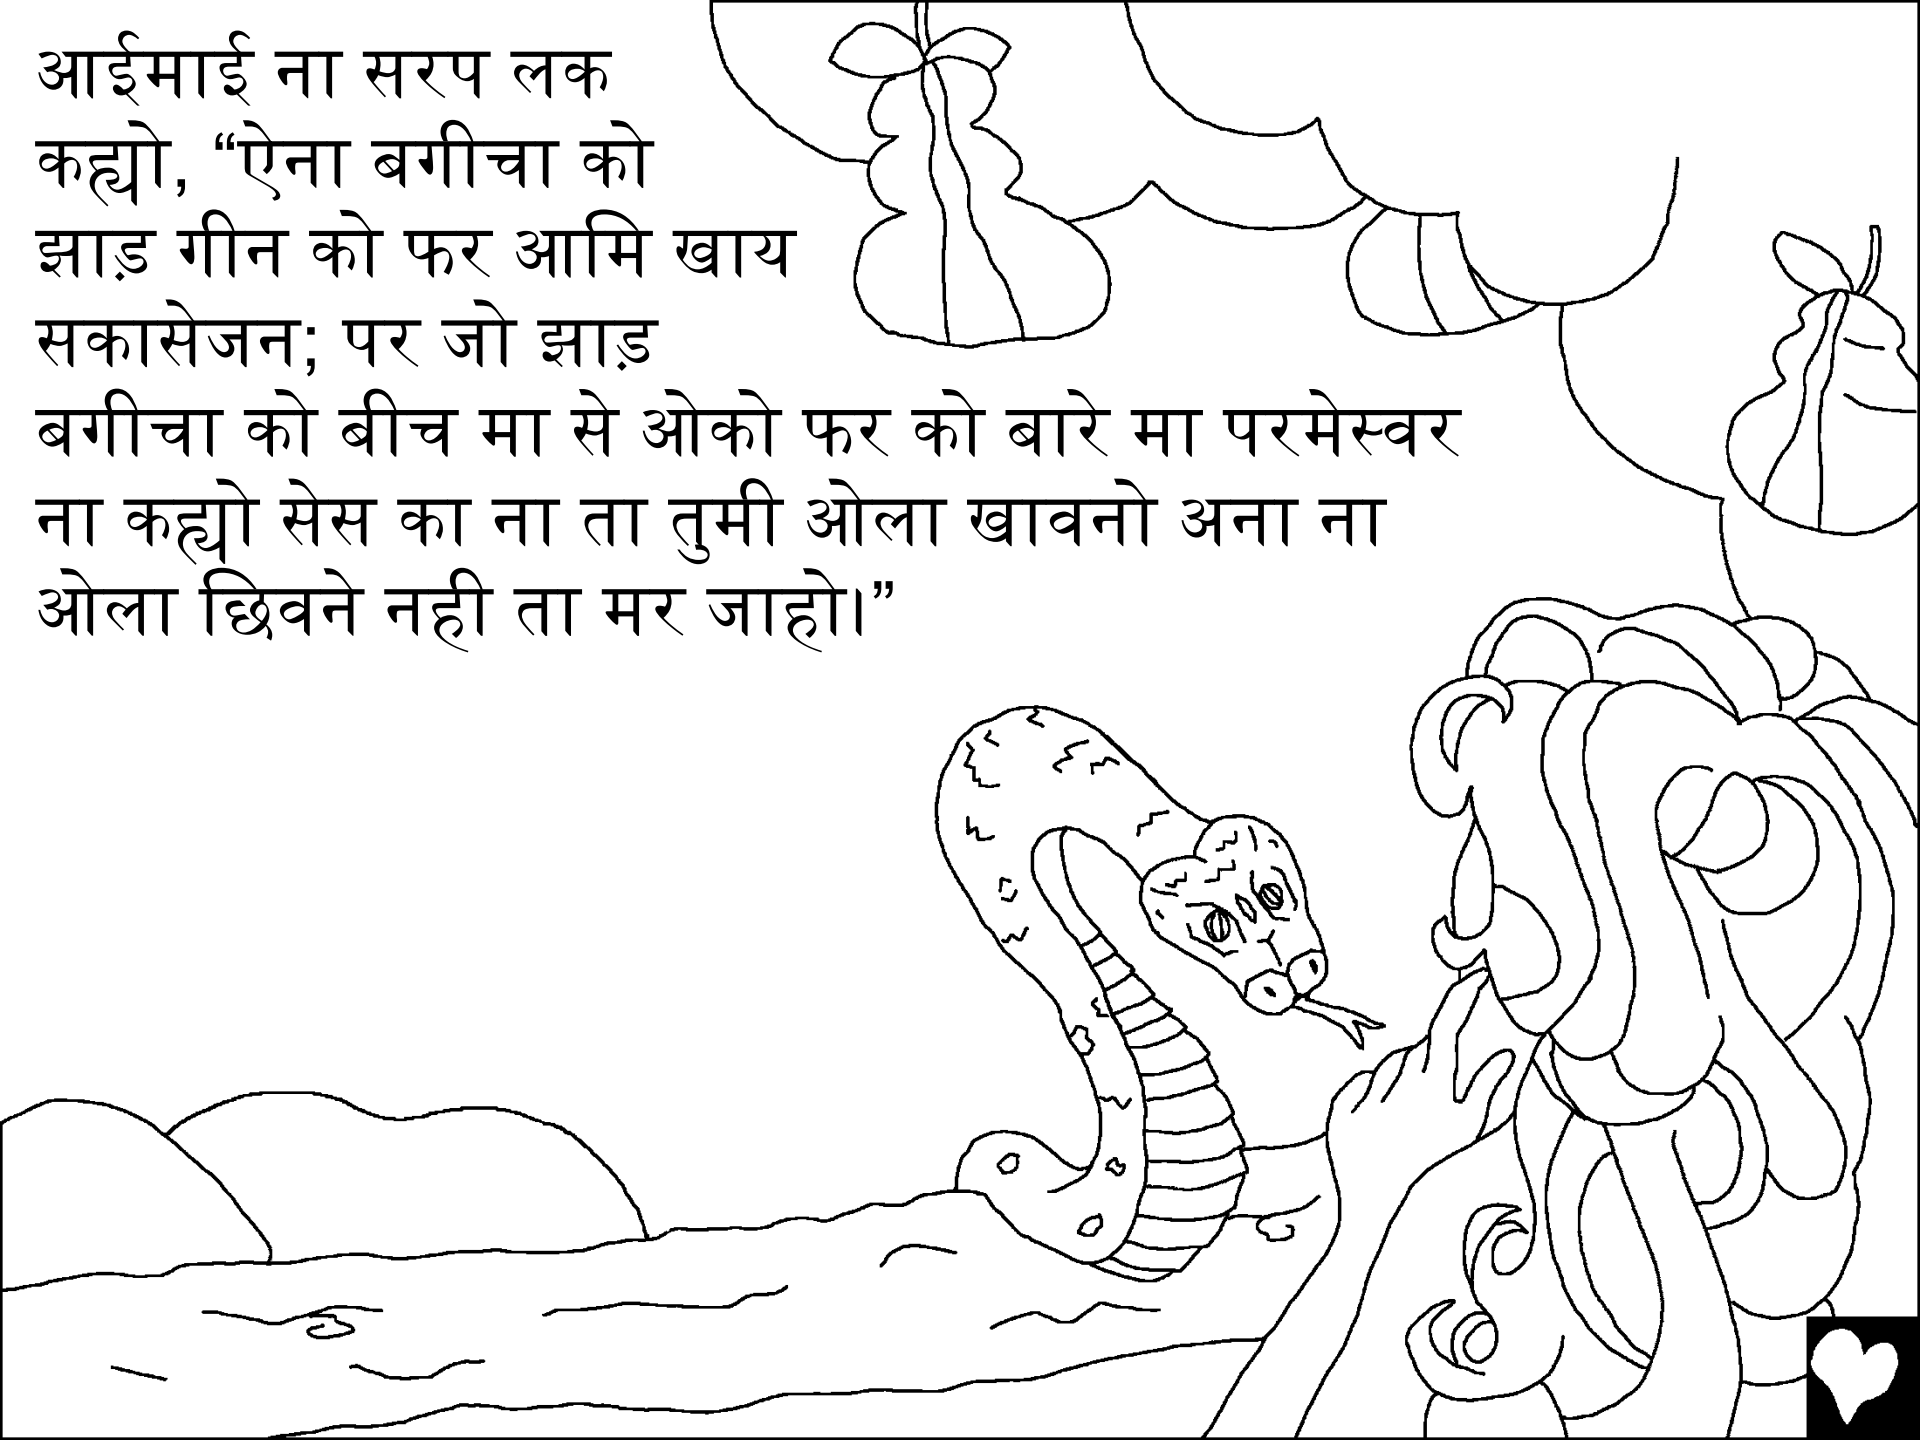 आईमाई ना सरप लक
कह्यो, “ऐना बगीचा को
झाड़ गीन को फर आमि खाय
सकासेजन; पर जो झाड़
बगीचा को बीच मा से ओको फर को बारे मा परमेस्वर
ना कह्यो सेस का ना ता तुमी ओला खावनो अना ना
ओला छिवने नही ता मर जाहो।”